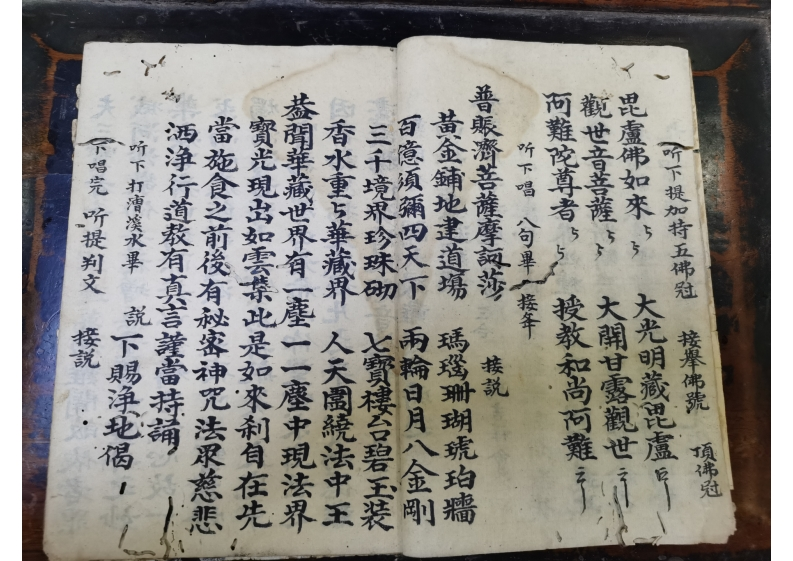 听下提加持五佛冠 接舉佛號 頂佛冠
毘盧佛如來 大光明藏毘盧
觀世音菩薩 大開甘露觀世
阿難陀尊者 授教和尚阿難
听下唱 八句畢 接年
普賑濟菩薩摩訶莎 接説
黄金鋪地建道場 瑪瑙珊瑚琥珀牆
百億須彌四天下 兩輪日月八金剛
三千境界珍珠砌 七寶樓台碧玉装
香水重重華藏界 人天圍繞法中王
葢聞華藏世界有一塵一一塵中現法界
寶光現出如雲集此是如來刹自在先
當施食之前後有秘密神咒法眾慈悲
洒淨行道教有真言謹當持誦
听下打漕溪水畢 説 下賜淨地偈
下唱完 听提判文 接説